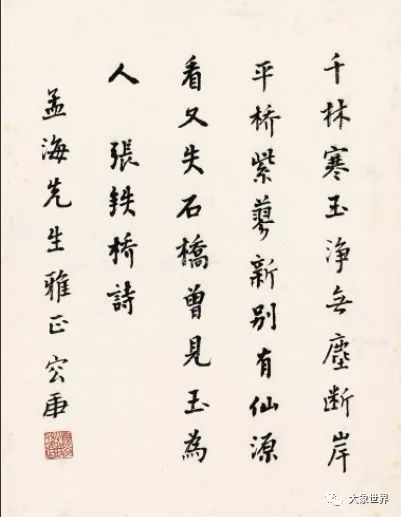 千林寒玉净无塵断岸
平桥紫蓼新别有仙源
看又失石橋曾見玉為
人 張鉄桥詩
孟海先生雅正
大象世界